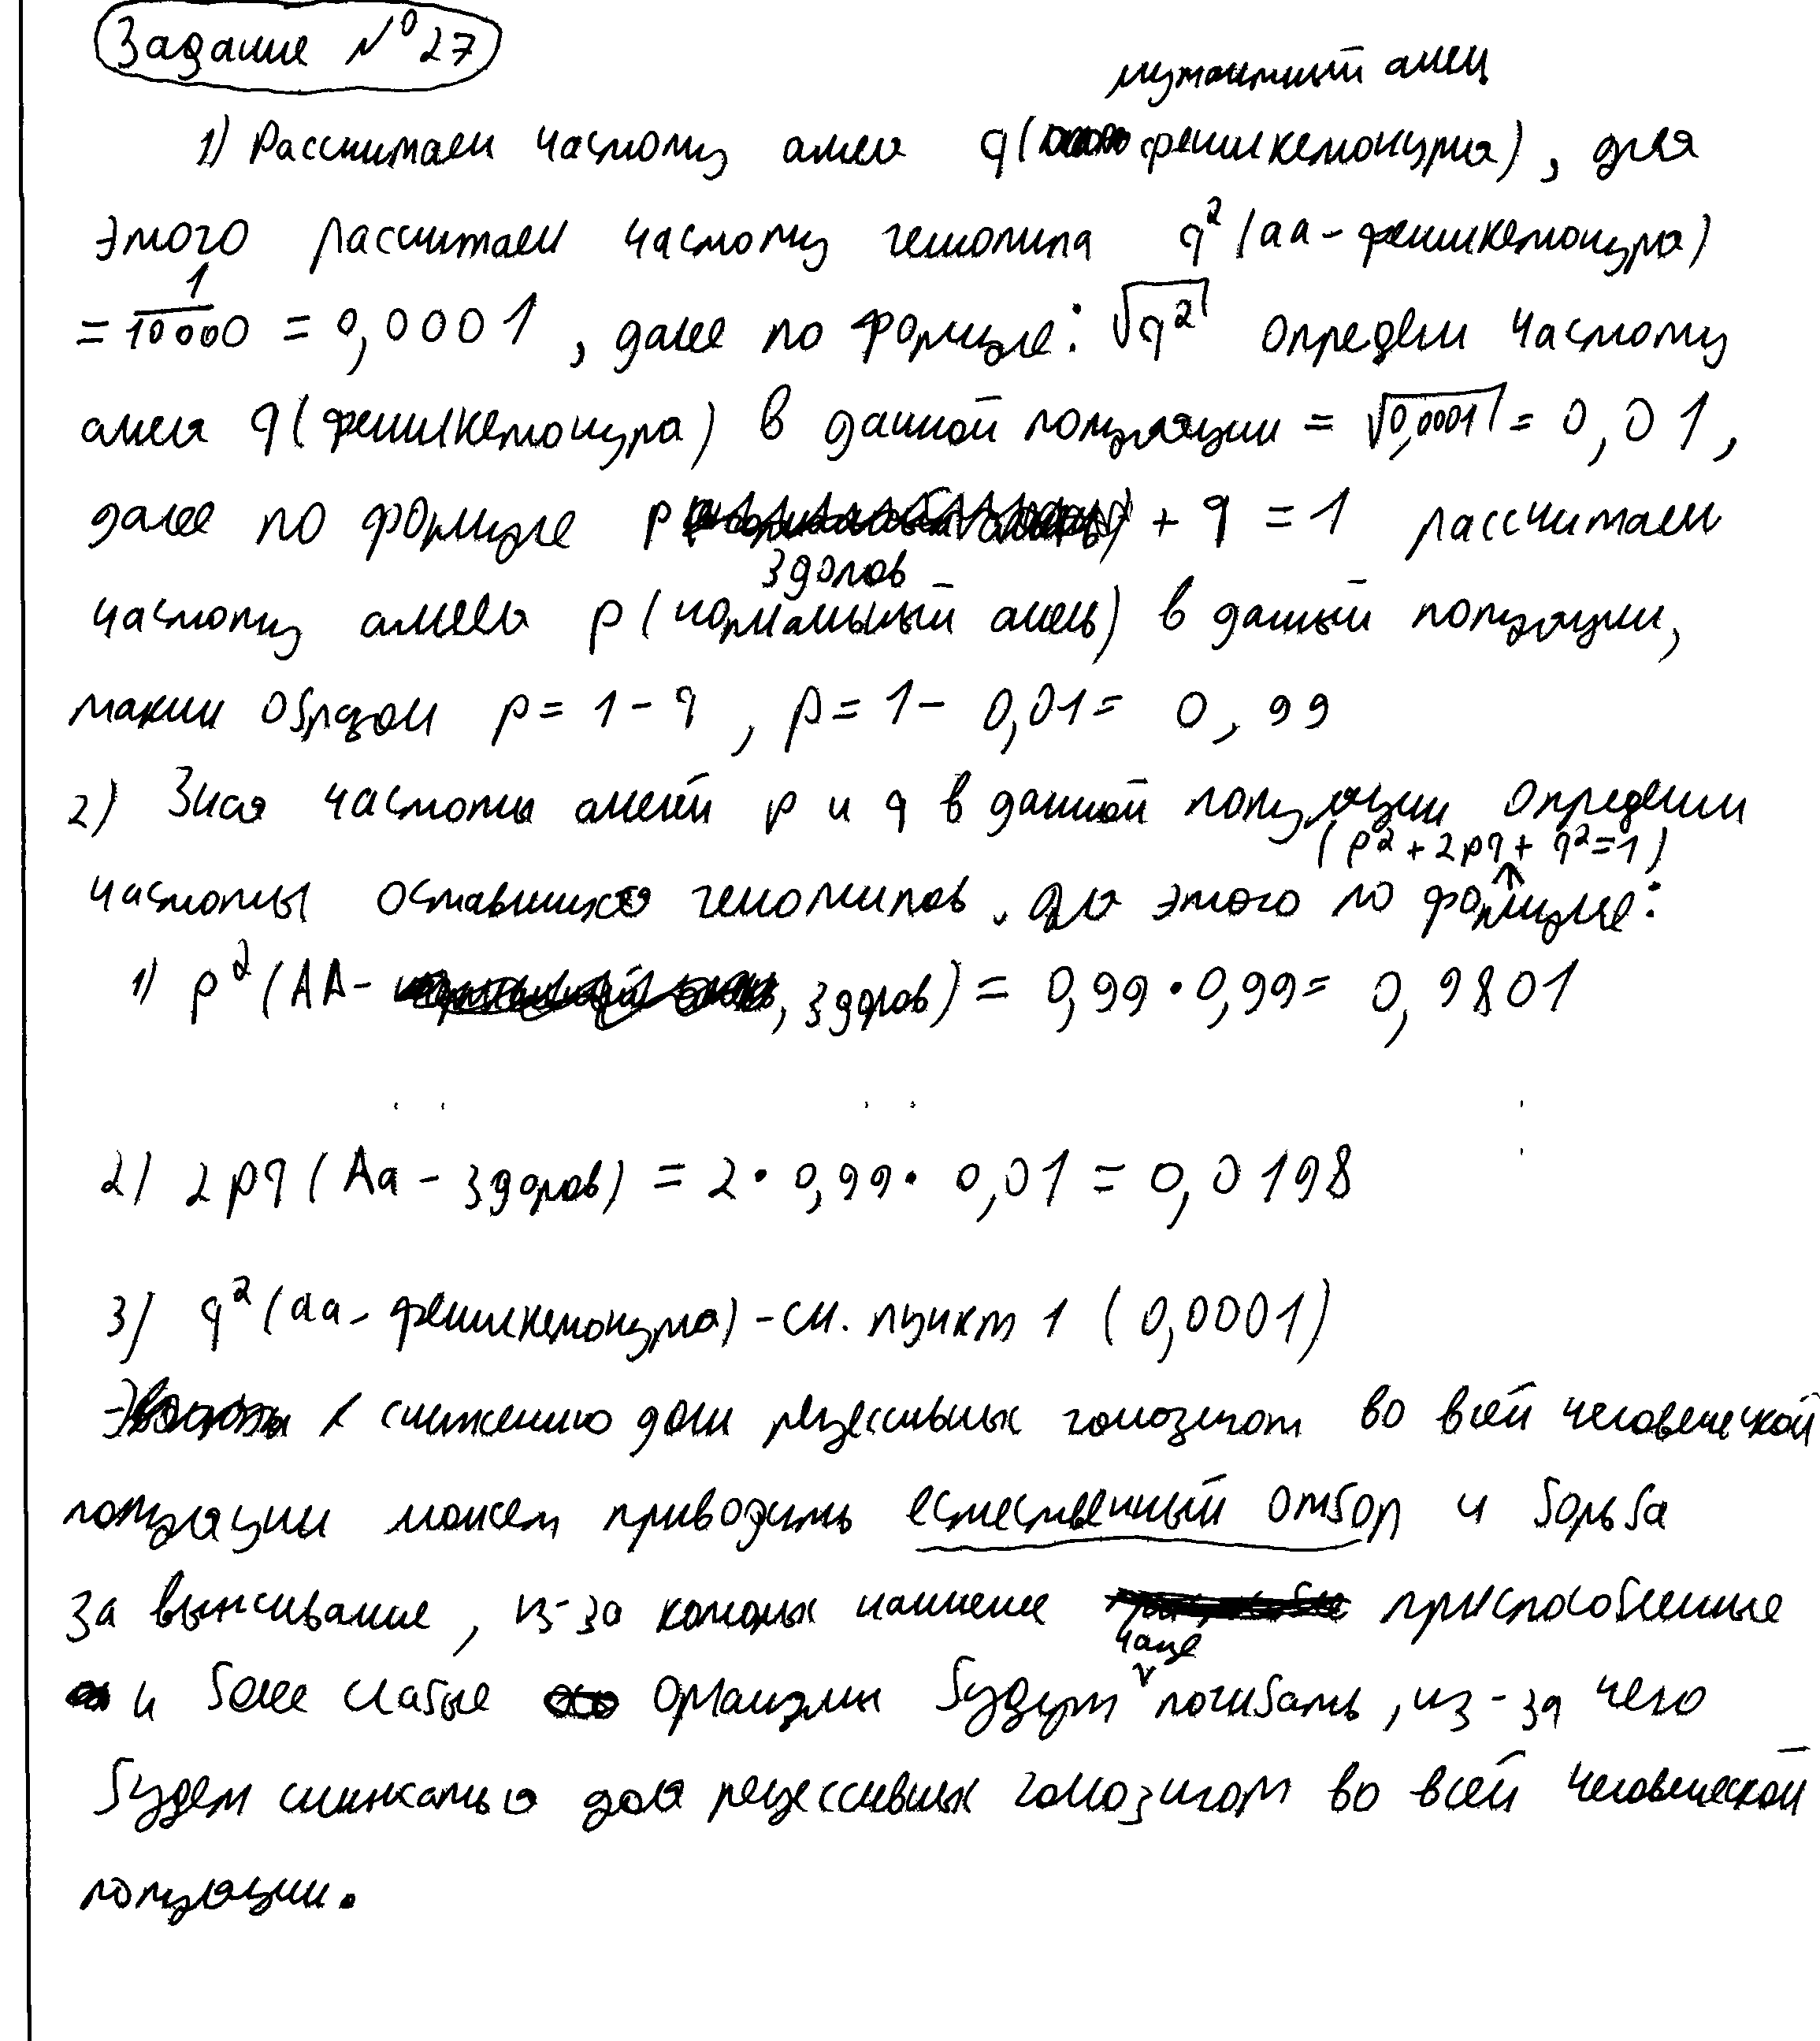 Задание №27
мутантный аллель
1) Рассчитаем частоту аллеля q( фенилкетонурия), для
этого рассчитаем частоту генотипа q² (aa-фенилкетонурия)
= 1/10000 = 0,0001 , далее по формуле: √q² определим частоту
аллеля q(фенилкетонурия) в данной популяции = √0,0001 = 0,01,
далее по формуле p + q = 1 рассчитаем
здоров
частоту аллеля p (нормальный аллель) в данной популяции,
таким образом p = 1 - q , p = 1 - 0,01 = 0,99
2) Зная частоты аллелей p и q в данной популяции определим
(p² + 2pq + q² = 1)
частоты оставшихся генотипов. для этого по формуле:
1) p² (AA- , здоров) = 0,99 • 0,99 = 0,9801
2) 2pq (Aa - здоров) = 2 • 0,99 • 0,01 = 0,0198
3) q² (aa - фенилкетонурия) - см. пункт 1 (0,0001)
К снижению доли рецессивных гомозигот во всей человеческой
популяции может приводить естественный отбор и борьба
за выживание, из-за которых наименее приспособленные
чаще
и более слабые организмы будут погибать, из-за чего
будет снижаться доля рецессивных гомозигот во всей человеческой
популяции.